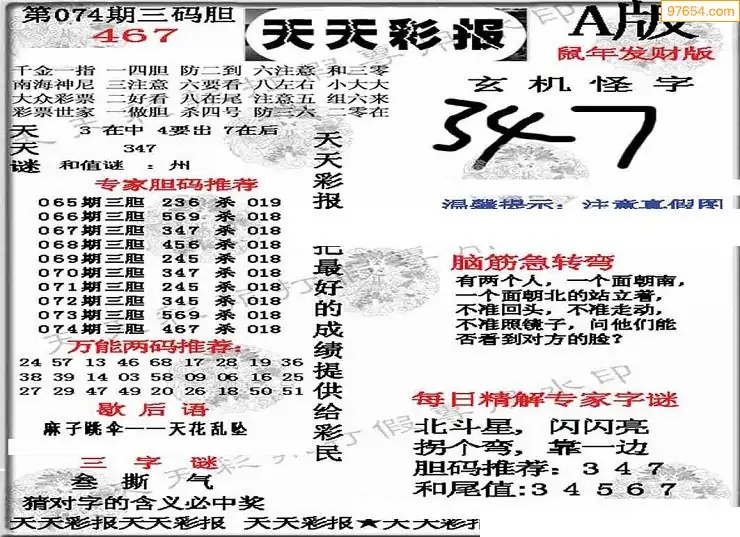 第074期三码胆
467
天天彩报
A版
鼠年发财版
97654.com
千金一指 一四胆 防二到 六注意 和三零
南海神尼 三注意 六要看 八左右 小大大
大众彩票 二好看 八在尾 注意五 组六来
彩票世家 一做胆 杀四号 防三六 二零在
天 3 在中 4要出 7在后
天 347
谜 和值谜 : 州
玄机怪字
347
温馨提示: 注意真假图
专家胆码推荐
065期三胆 236 杀 019
066期三胆 569 杀 018
067期三胆 347 杀 018
068期三胆 456 杀 018
069期三胆 245 杀 018
070期三胆 347 杀 018
071期三胆 245 杀 018
072期三胆 345 杀 018
073期三胆 569 杀 018
074期三胆 467 杀 018
万能两码推荐:
24 57 13 46 68 17 28 19 36
38 39 14 03 58 09 06 16 25
27 29 47 49 20 26 18 50 51
歇后语
麻子跳伞——天花乱坠
三字谜
叁 撕 气
猜对字的含义必中奖
天天彩报 把最好的成绩提供给彩民
脑筋急转弯
有两个人，一个面朝南，
一个面朝北的站立着，
不准回头，不准走动，
不准照镜子，问他们能
否看到对方的脸?
每日精解专家字谜
北斗星，闪闪亮
拐个弯，靠一边
胆码推荐: 3 4 7
和尾值:3 4 5 6 7
天天彩报天天彩报 天天彩报★天天彩报